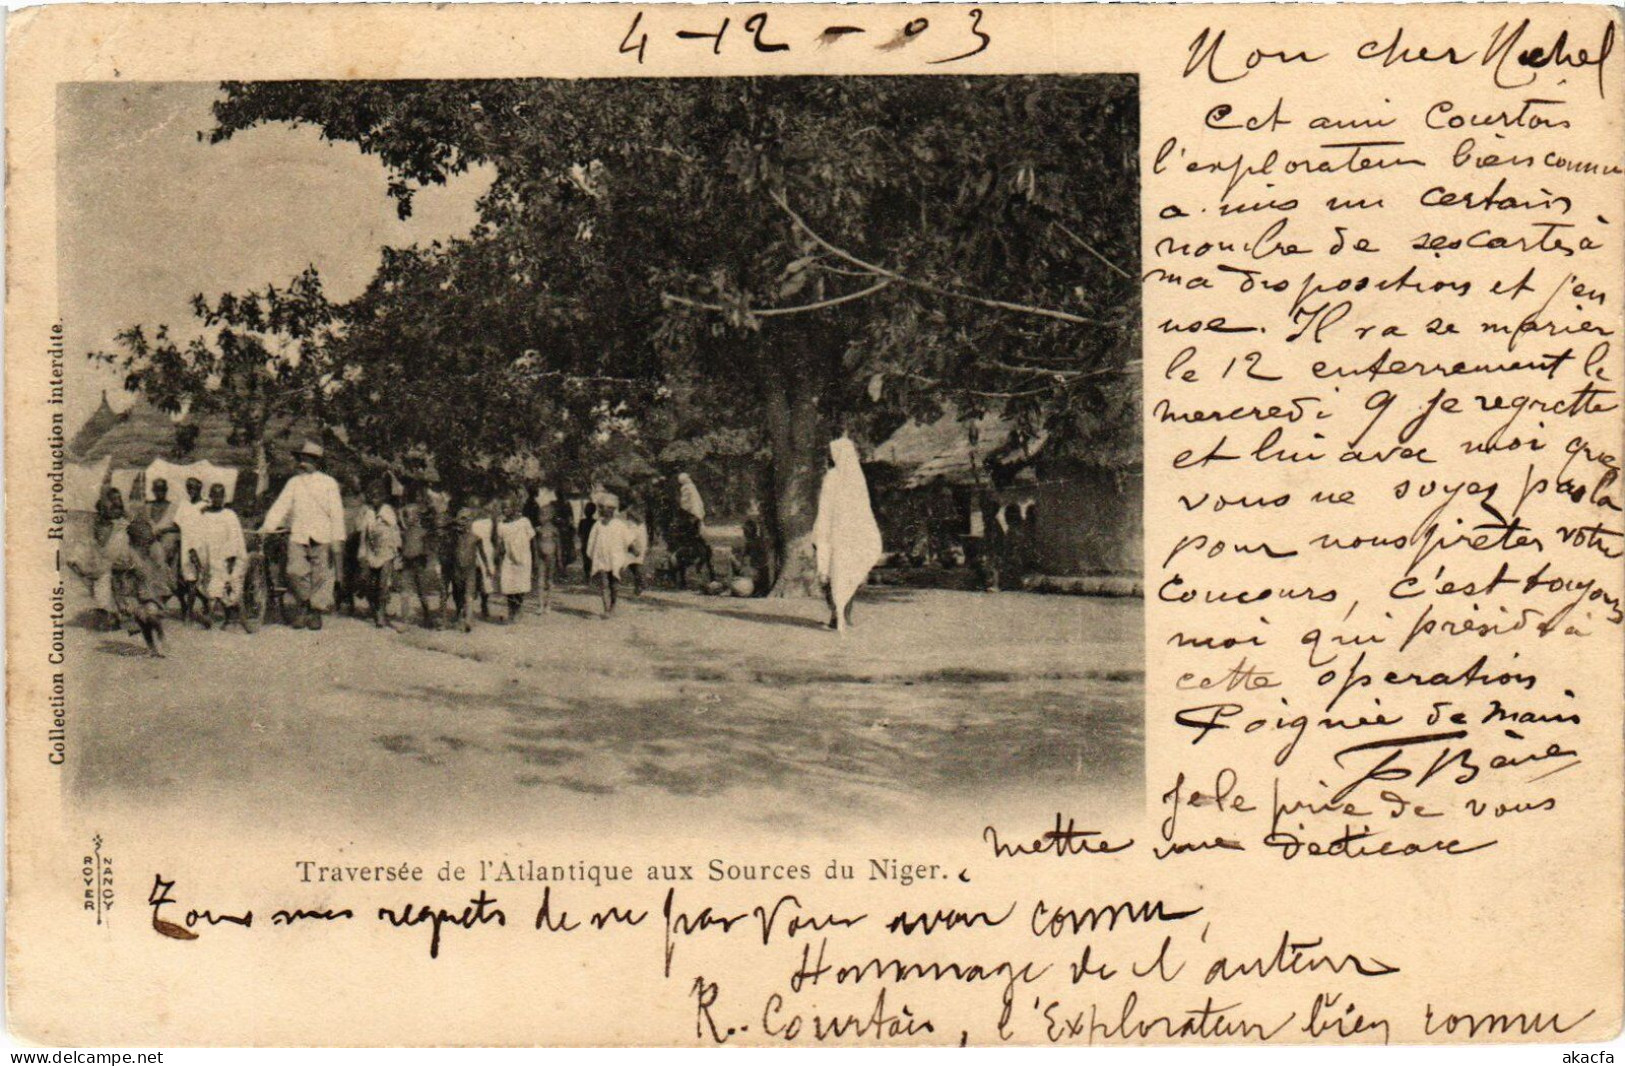 4-12-03
Mon cher Michel
Cet ami Courtois
l'explorateur bien connu
a mis un certain
nombre de ses cartes à
ma disposition et j'en
use. Il va se marier
le 12 enterrement le
mercredi 9 Je regrette
et lui avec moi que
vous ne soyez pas là
pour nous prêter votre
concours, c'est toujours
moi qui préside à
cette operation
Poignée de main
Je le prie de vous
mettre une dédicace
Collection Courtois. — Reproduction interdite.
ROYER NANCY
Traversée de l'Atlantique aux Sources du Niger.
Tous mes regrets de ne pas vous avoir connu,
Hommage de l'auteur
R. Courtois, l'Explorateur bien connu
akacfa